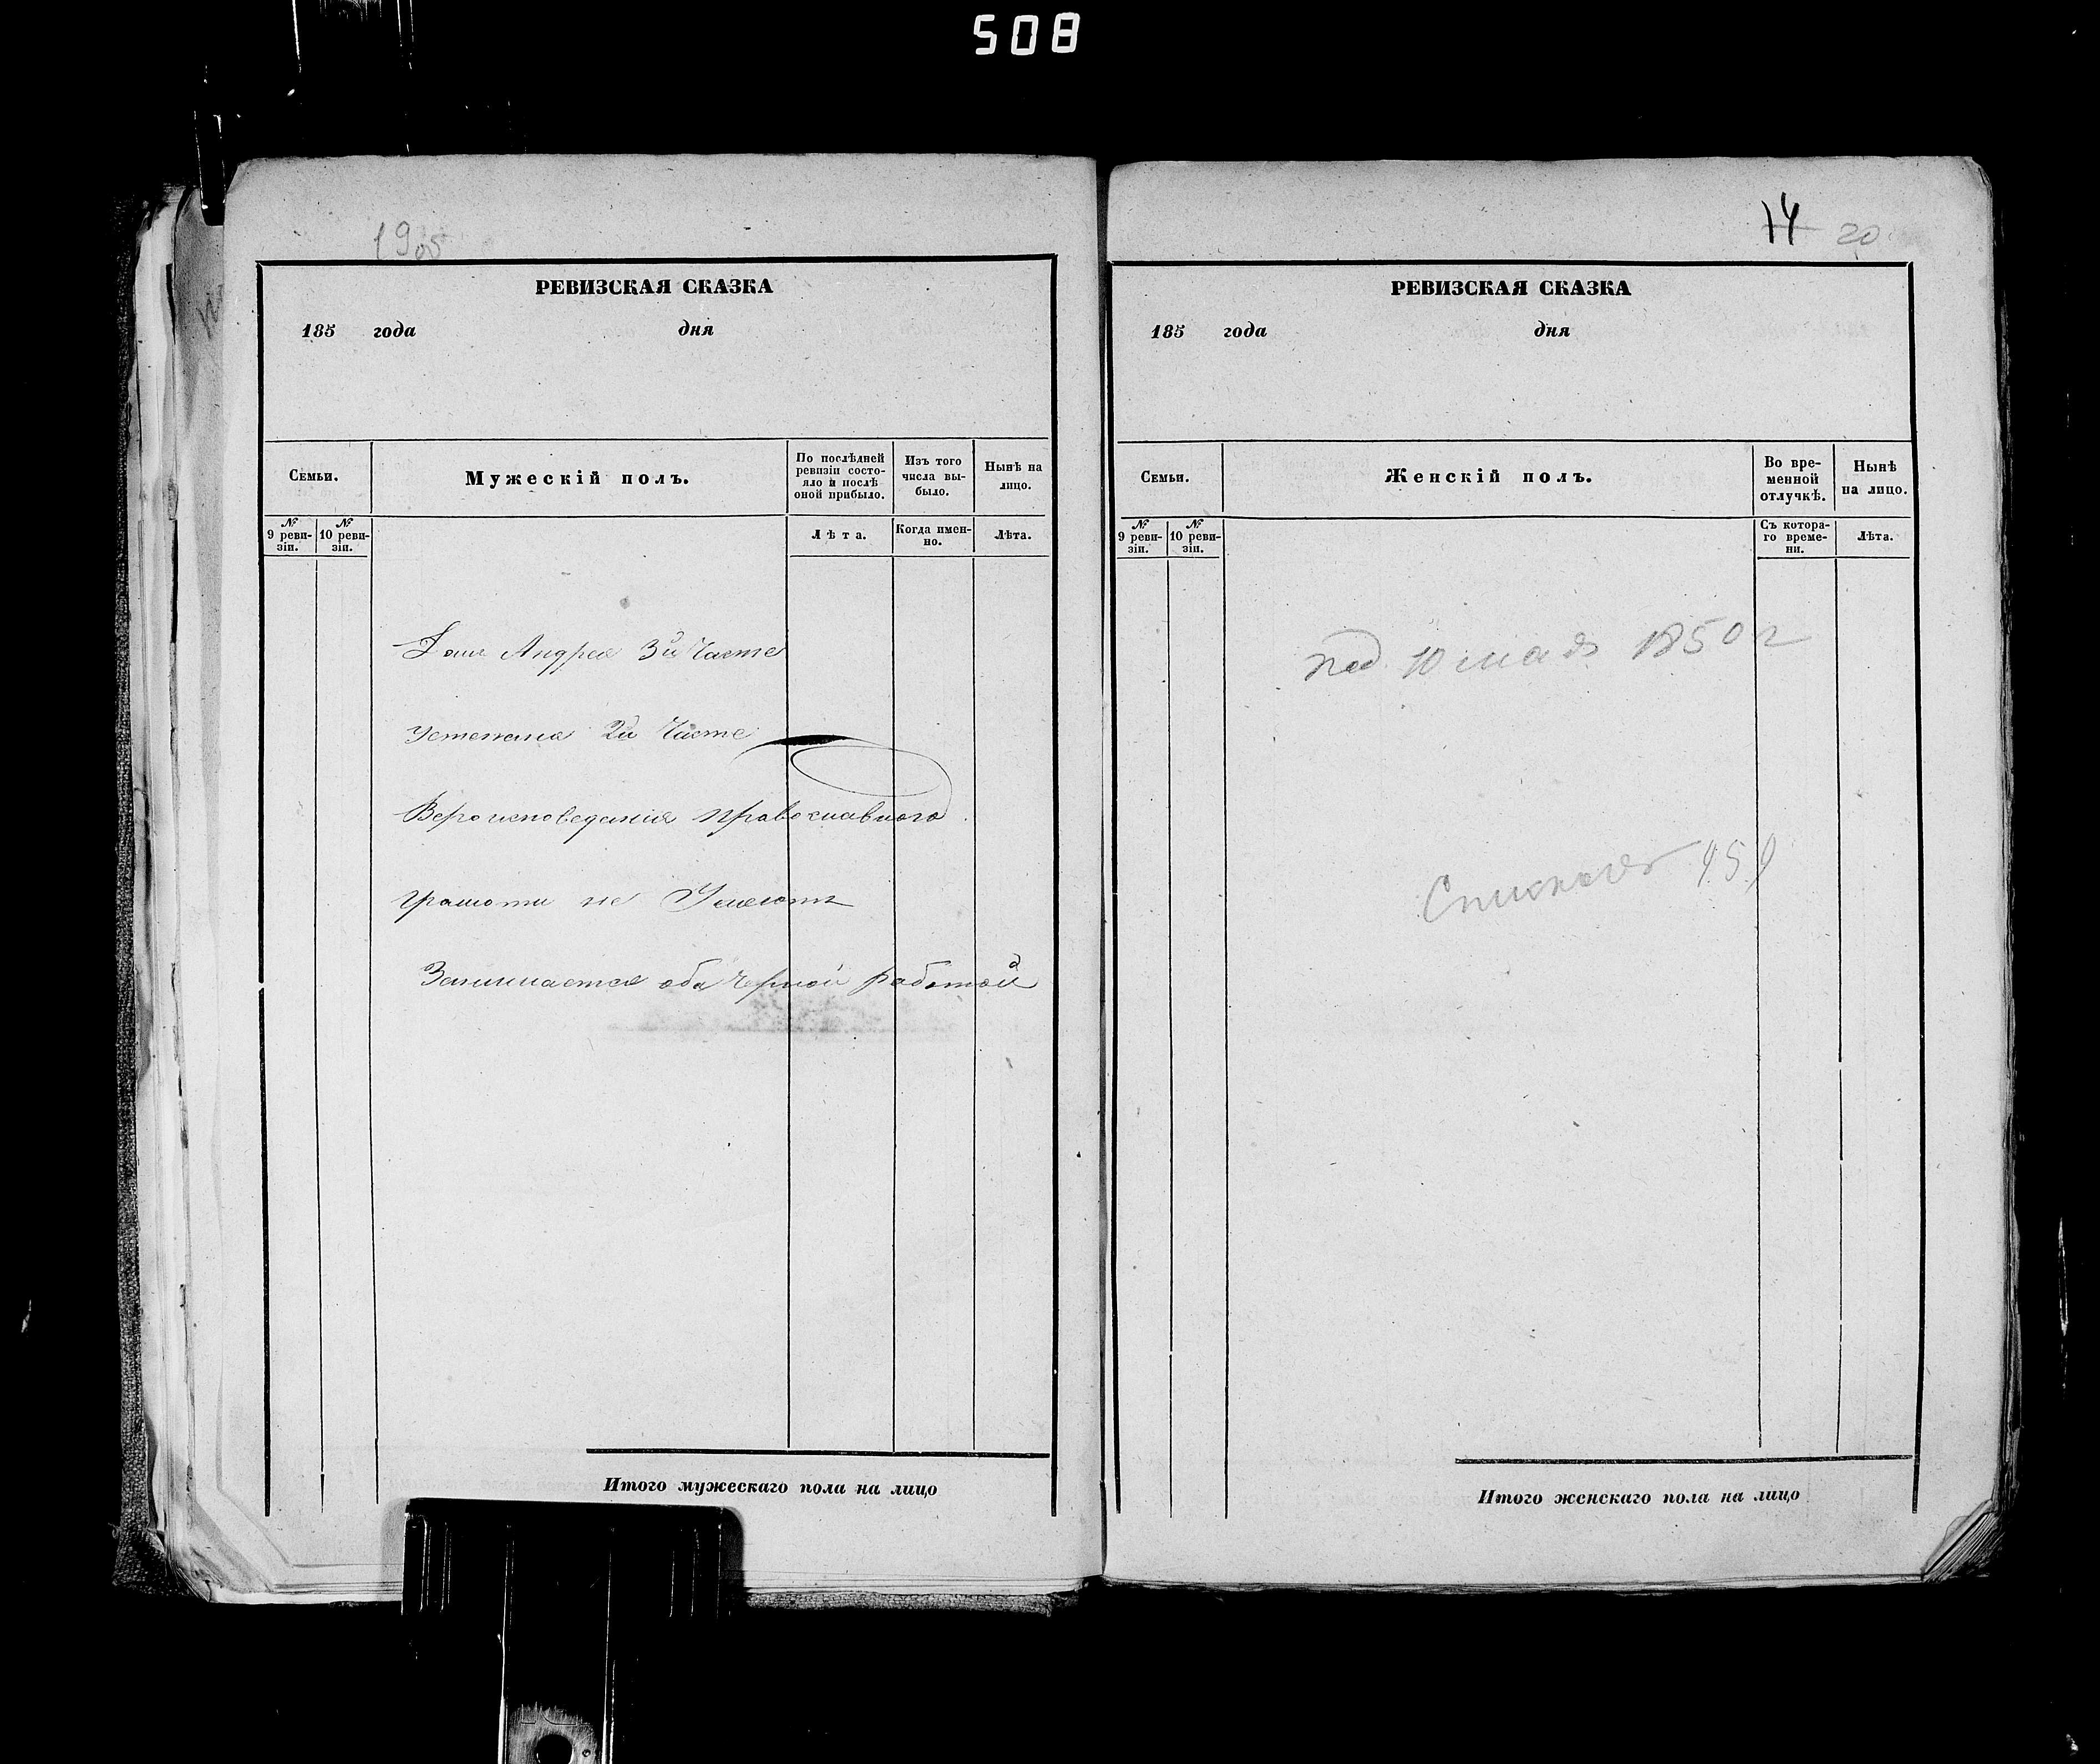 508
19об
РЕВИЗСКАЯ СКАЗКА
185 года дня
Семьи.
Мужескій полъ.
По послѣдней ревизіи состояло и послѣ оной прибыло.
Изъ того числа выбыло.
Нынѣ на лицо.
№ 9 ревизіи.
№ 10 ревизіи.
Лѣта.
Когда именно.
Лѣта.
Домъ Андрея 3й Части
Устенана 2й Части
Вероисповедания православного
грамоти не Умеютъ
Занимается оба Черной работой
Итого мужескаго пола на лицо
14 20
РЕВИЗСКАЯ СКАЗКА
185 года дня
Семьи.
Женскій полъ.
Во временной отлучкѣ.
Нынѣ на лицо.
№ 9 ревизіи.
№ 10 ревизіи.
Съ котораго времени.
Лѣта.
под 10 мая 1850 г
Итого женскаго пола на лицо